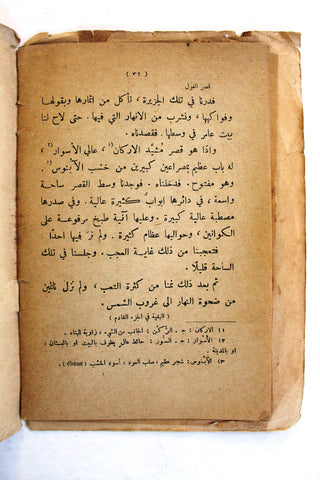 ( ٣٢ )
قصر الغول
فدرنا في تلك الجزيرة، نأكل من اثمارها وبقولها
وفواكهها، ونشرب من الانهار التي فيها. حتى لاح لنا
بيت عامر في وسطها. فقصدناه.
واذا هو قصر مُشيّد الاركان (١، عالي الأسوار (٢،
له باب عظيم بمصراعين كبيرين من خشب الآبنوس (٣.
وهو مفتوح. فدخلناه. فوجدنا وسط القصر ساحة
واسعة، في دائرها ابوابٌ كثيرة عالية. وفي صدرها
مصطبة عالية كبيرة. وعليها آنية طبيخ مرفوعة على
الكوانين، وحواليها عظام كثيرة. ولم نرَ فيها احدًا
فتعجبنا من ذلك غاية العجب. وجلسنا في تلك
الساحة قليلًا.
ثم بعد ذلك نمنا من كثرة التعب، ولم نزل نائمين
من ضحوة النهار الى غروب الشمس.
( البقية في الجزء القادم )
١) الاركان: ج. الرُّكْن: الجانب من الشيء، زاوية البناء.
٢) الأسوار: ج. السور: حائط عالٍ يطوف بالبيت او بالبستان،
او بالمدينة.
٣) الآبنوس: شجر عظيم، صلب العود، أسود الخشب (ébène)